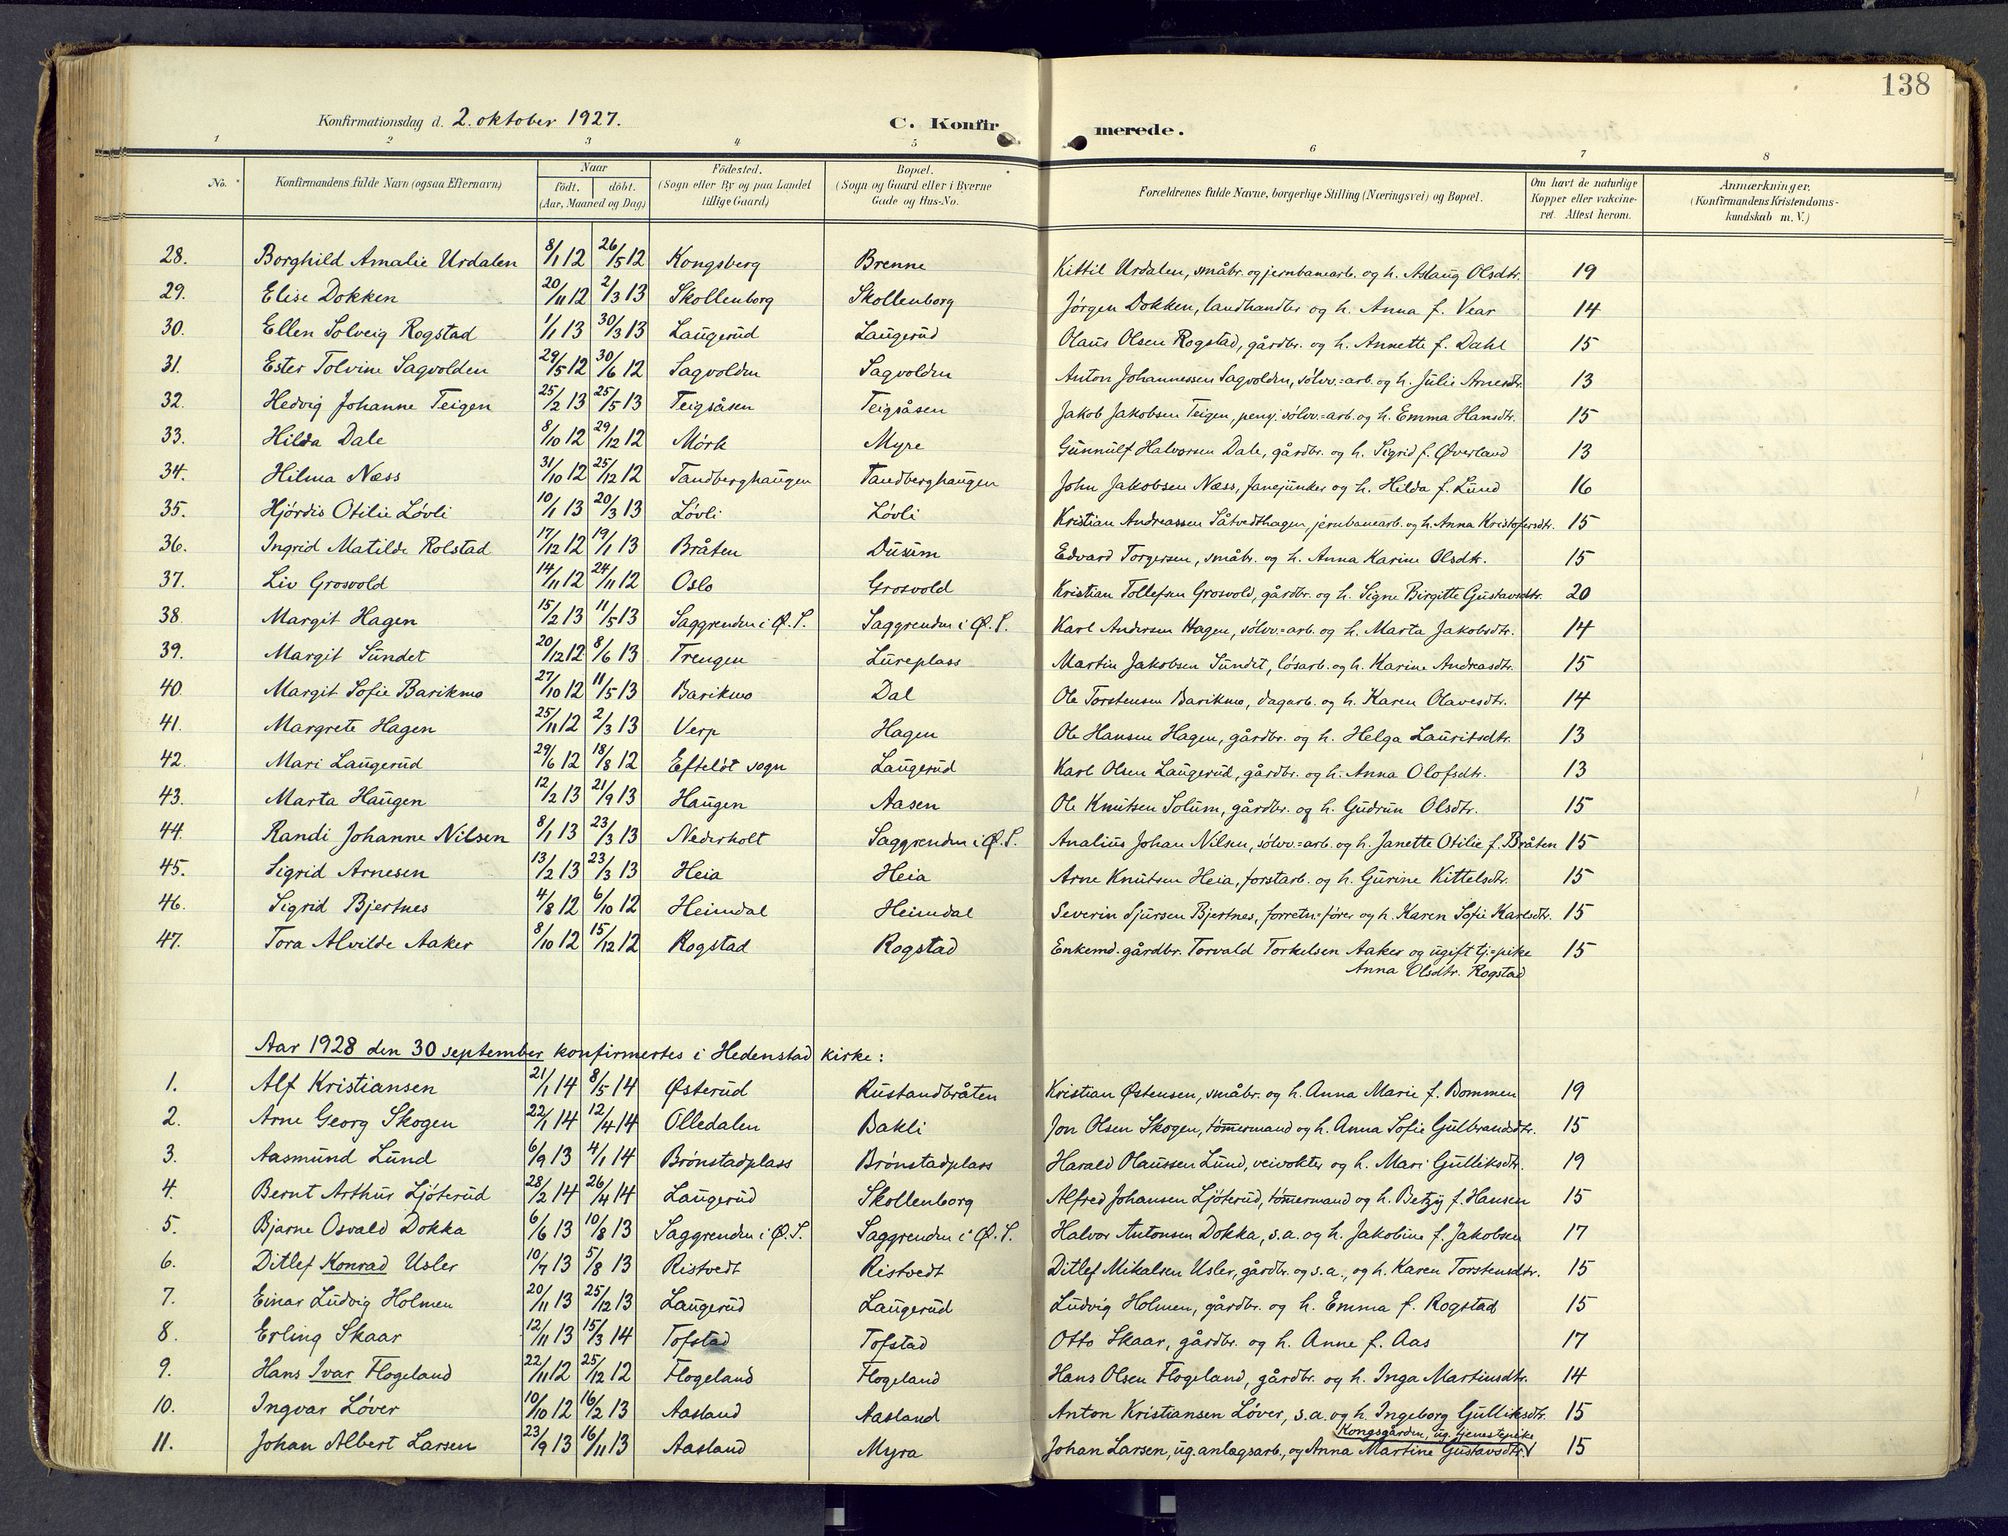 138
Konfirmationsdag d. 2. oktober 1927. C. Konfirmerede.
1 2 3 4 5 6 7 8
No. Konfirmandens fulde Navn (ogsaa Efternavn) Naar født. døbt. (Aar, Maaned og Dag) Fødested. (Sogn eller By og paa Landet tillige Gaard) Bopæl. (Sogn og Gaard eller i Byerne Gade og Hus-No. Forældrenes fulde Navne, borgerlige Stilling (Næringsvei) og Bopæl. Om havt de naturlige Kopper eller vakcineret. Attest herom. Anmærkninger. (Konfirmandens Kristendomskundskab m. V.)
28. Borghild Amalie Urdalen 8/1 12 26/5 12 Kongsberg Brenne Kittil Urdalen, småbr. og jernbanearb. og h. Aslaug Olsdtr. 19
29. Elise Dokken 20/11 12 2/3 13 Skollenborg Skollenborg Jørgen Dokken, landhandler og h. Anna f. Vear 14
30. Ellen Solveig Rogstad 1/1 13 30/3 13 Laugerud Laugerud Olaus Olsen Rogstad, gårdbr. og h. Annette f. Dahl 15
31. Ester Tolvine Sagvolden 29/5 12 30/6 12 Sagvolden Sagvolden Anton Johannessen Sagvolden, sølvv.=arb. og h. Julie Arnesdtr. 13
32. Hedvig Johanne Teigen 25/2 13 25/5 13 Teigsåsen Teigsåsen Jakob Jakobsen Teigen, penj. sølvv.=arb. og h. Emma Hansdtr. 15
33. Hilda Dale 8/10 12 29/12 12 Mørk Myre Gunnulf Halvorsen Dale, gårdbr. og h. Sigrid f. Øverland 13
34. Hilma Næss 31/10 12 25/12 12 Tandberghaugen Tandberghaugen John Jakobsen Næss, fanejunker og h. Hilda f. Lund 16
35. Hjördis Otilie Løvli 10/1 13 20/3 13 Løvli Løvli Kristian Andreassen Såtvedthagen, jernbanearb. og h. Anna Kristofersdtr. 15
36. Ingrid Matilde Rolstad 17/12 12 19/1 13 Bråten Dusum Edvard Torgersen, småbr. og h. Anna Karine Olsdtr. 15
37. Liv Grosvold 14/11 12 24/11 12 Oslo Grosvold Kristian Tollefsen Grosvold, gårdbr. og h. Signe Birgitte Gustavsdtr. 20
38. Margit Hagen 15/2 13 11/5 13 Saggrenden i Ø. S. Saggrenden i Ø. S. Karl Andersen Hagen, sølvv.=arb. og h. Marta Jakobsdtr. 14
39. Margit Sundet 20/12 12 8/6 13 Trengen Lureplass Martin Jakobsen Sundet, løsarb. og h. Karine Andreasdtr. 15
40. Margit Sofie Barikmo 27/10 12 11/5 13 Barikmo Dal Ole Torstensen Barikmo, dagarb. og h. Karen Olavesdtr. 14
41. Margrete Hagen 25/11 12 2/3 13 Verp Hagen Ole Hansen Hagen, gårdbr. og h. Helga Lauritsdtr. 13
42. Mari Laugerud 29/6 12 18/8 12 Efteløt sogn Laugerud Karl Olsen Laugerud, gårdbr. og h. Anna Olofsdtr. 13
43. Marta Haugen 12/2 13 21/9 13 Haugen Aasen Ole Knutsen Solum, gårdbr. og h. Gudrun Olsdtr. 15
44. Randi Johanne Nilsen 8/1 13 23/3 13 Nederholt Saggrenden i Ø. S. Analius Johan Nilsen, sølvv.=arb. og h. Janette Otilie f. Bråten 15
45. Sigrid Arnesen 13/2 13 23/3 13 Heia Heia Arne Knutsen Heia, forstarb. og h. Gurine Kittelsdtr. 15
46. Sigrid Bjertnes 4/8 12 6/10 12 Heimdal Heimdal Severin Sjursen Bjertnes, forretn.=fører og h. Karen Sofie Karlsdtr. 15
47. Tora Alvilde Aaker 8/10 12 15/12 12 Rogstad Rogstad Enkemd. gårdbr. Torvald Torkelsen Aaker og ugift tj.=pike 15
Anna Olsdtr. Rogstad
Aar 1928 den 30 september konfirmertes i Hedenstad kirke:
1. Alf Kristiansen 21/1 14 8/5 14 Østerud Rustandbråten Kristian Østensen, småbr. og h. Anna Marie f. Bommen 19
2. Arne Georg Skogen 22/1 14 12/4 14 Olledalen Bakli Jon Olsen Skogen, tømmermand og h. Anna Sofie Gulbrandsdtr. 15
3. Aasmund Lund 6/9 13 4/1 14 Brønstadplass Brønstadplass Harald Olaussen Lund, veivokter og h. Mari Gulliksdtr. 19
4. Bernt Arthur Ljøterud 28/2 14 26/4 14 Laugerud Skollenborg Alfred Johansen Ljøterud, tømmermand og h. Betzy f. Hansen 15
5. Bjarne Osvald Dokka 6/6 13 10/8 13 Saggrenden i Ø. S. Saggrenden i Ø. S. Halvor Antonsen Dokka, s.a. og h. Jakobine f. Jakobsen 17
6. Ditlef Konrad Usler 10/7 13 5/8 13 Ristvedt Ristvedt Ditlef Mikalsen Usler, gårdbr. og s.a., og h. Karen Torstensdtr. 15
7. Einar Ludvig Holmen 20/11 13 25/12 13 Laugerud Laugerud Ludvig Holmen, gårdbr. og h. Emma f. Rogstad 15
8. Erling Skaar 12/11 13 15/3 14 Tofstad Tofstad Otto Skaar, gårdbr. og h. Anne f. Aas 17
9. Hans Ivar Flogeland 22/11 12 25/12 12 Flogeland Flogeland Hans Olsen Flogeland, gårdbr. og h. Inga Martinsdtr. 14
10. Ingvar Løver 10/10 12 16/2 13 Aasland Aasland Anton Kristiansen Løver, s.a. og h. Ingeborg Gulliksdtr. 15
Kongsgården, ug. tjenestepike
11. Johan Albert Larsen 23/9 13 16/11 13 Aasland Myra Johan Larsen, ug. anlægsarb., og Anna Martine Gustavsdtr. 15